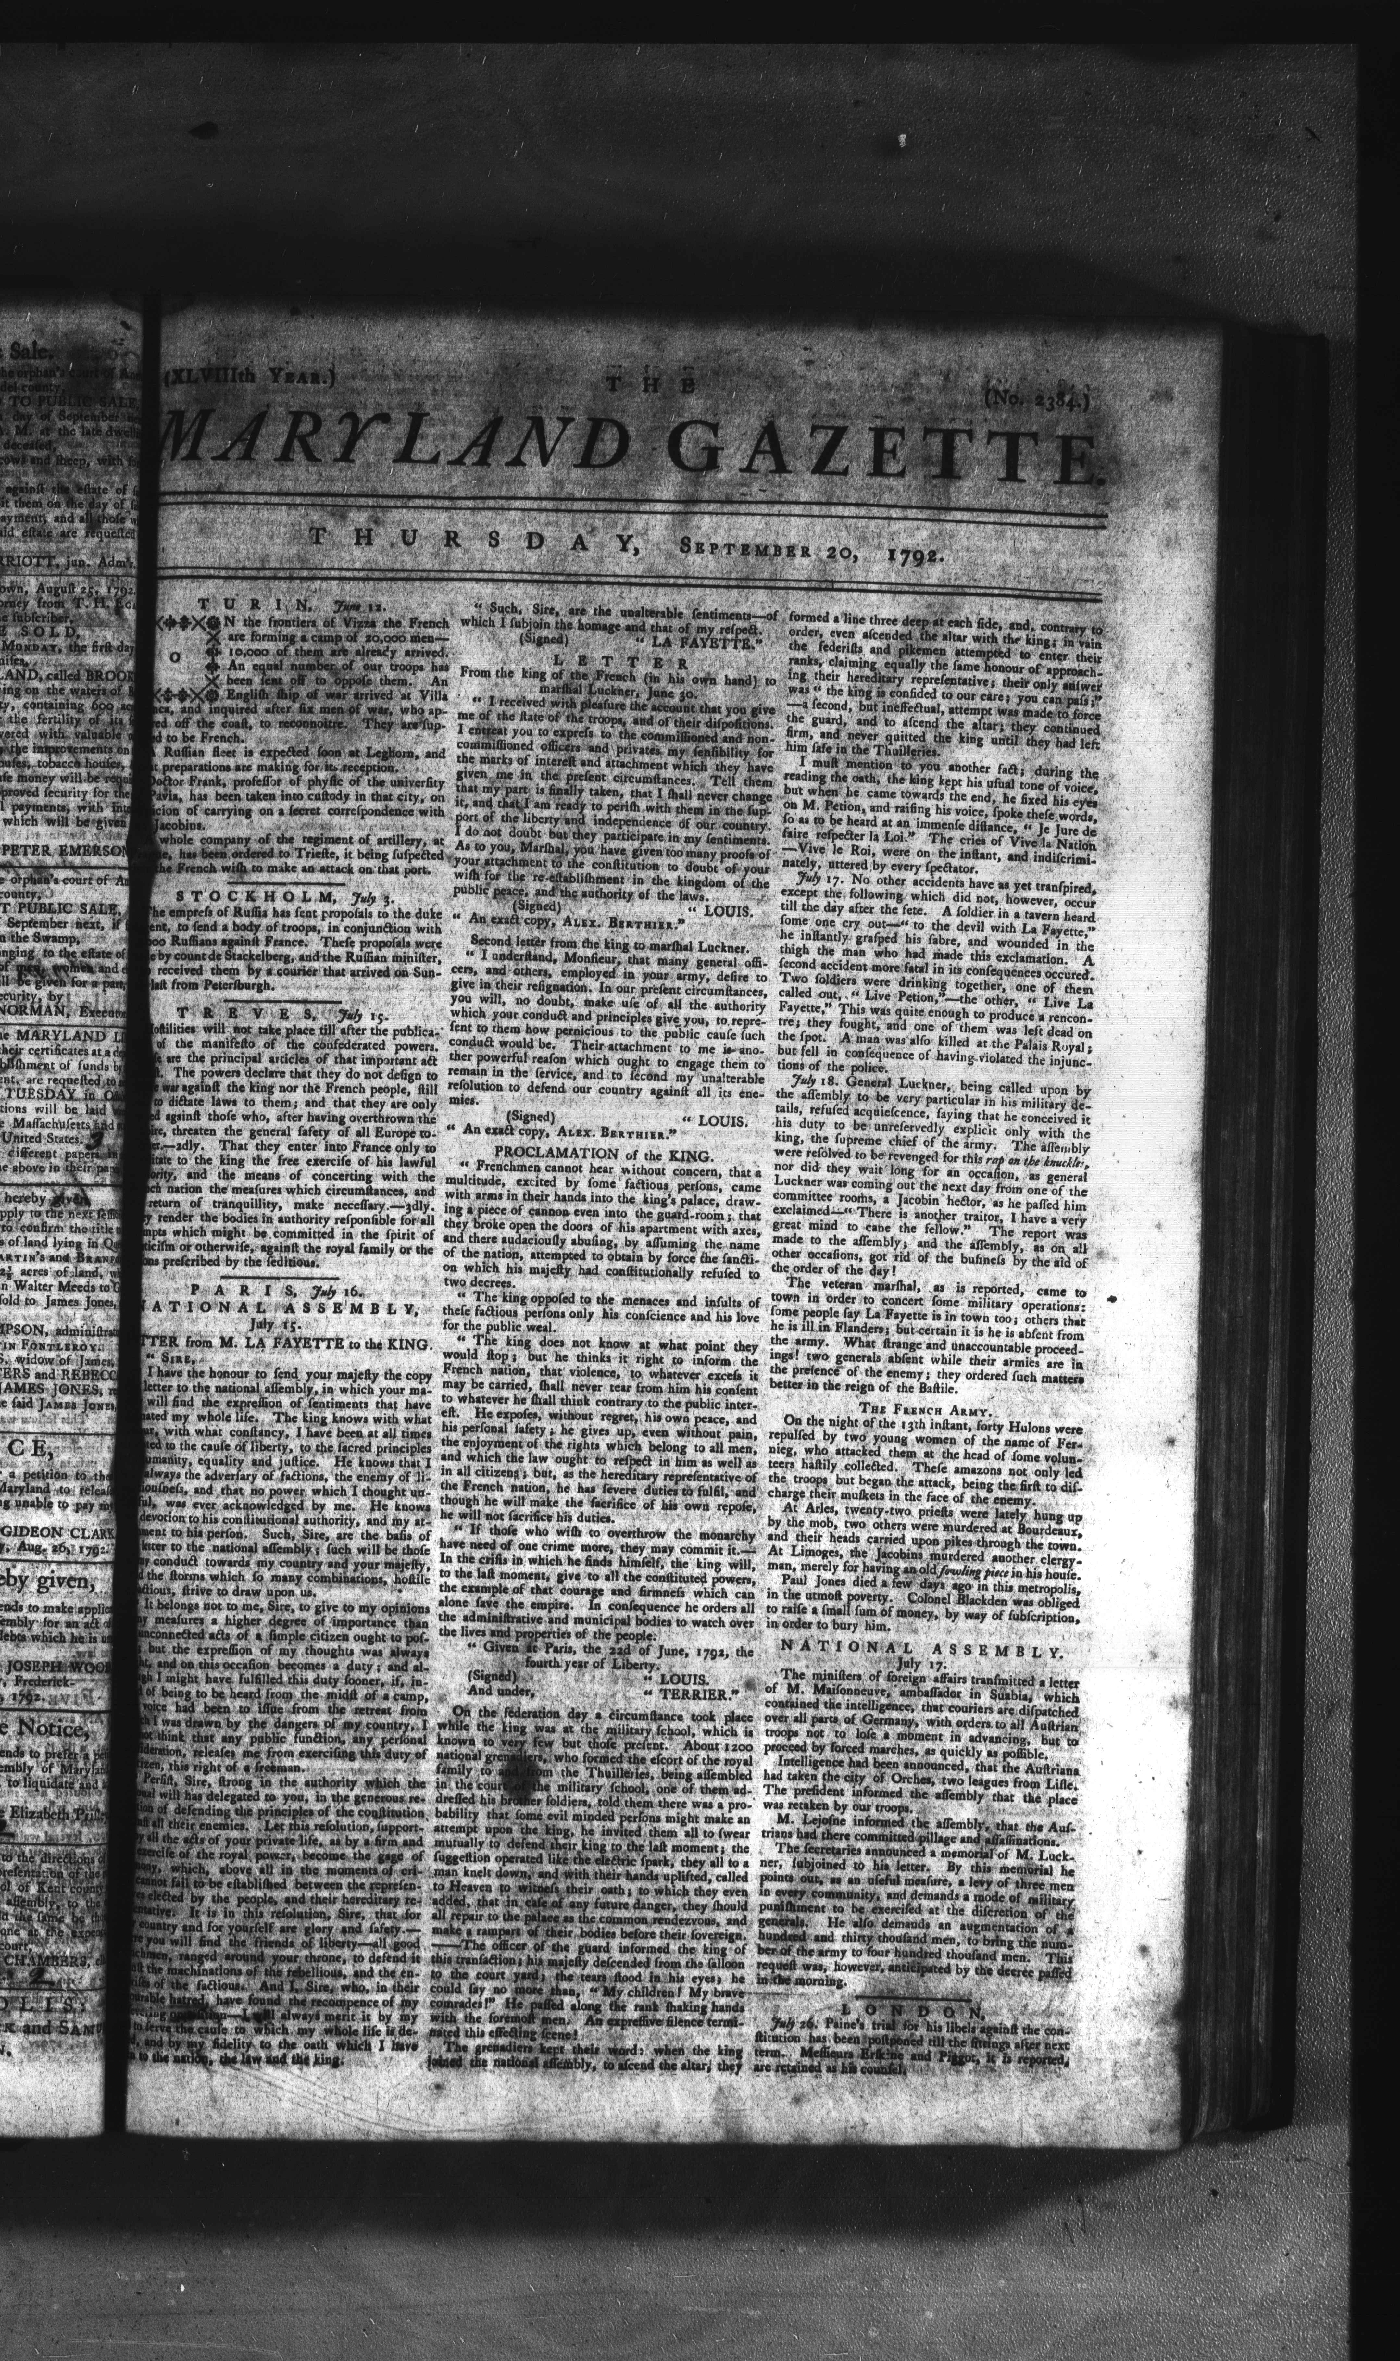 Sale.
TO PUBLIC SALE,
day of September
M. at the late dwell
deceased,
cows and sheep, with
against the estate of
it them on the day of
payment, and all those
estate are requested
RRIOTT, jun. Adm'r.
own, August 25, 1792.
orney from T. H.
subscriber,
SOLD,
MONDAY, the first day
LAND, called BROOK
ing on the waters of
containing 600
the fertility of its
vered with valuable
the improvements on
houses, tobacco houses,
money will be
approved security for the
payments, with
which will be given
PETER EMERSON
orphan's court of
county,
PUBLIC SALE,
September next, if
the Swamp,
to the estate of
women and
be given for a part,
security, by
NORMAN, Executor
MARYLAND
their certificates at a
of funds
are requested to
TUESDAY in
tions will be laid
Massachusetts and
United States.
different papers
above in their
hereby given,
apply to the next
to confirm the title
of land lying in
acres of land,
Walter Meeds to
sold to James Jones,
administrat
widow of James,
and REBECC
JAMES JONES,
said JAMES JONES,
CE,
a petition to the
Maryland to release
unable to pay my
GIDEON CLARK
Aug. 26, 1792.
eby given,
ends to make applic
for an act
debts which he is
JOSEPH WOO
Frederick-
1792.
Notice,
ends to prefer a
of Maryland
to liquidate and
Elizabeth
to the directions
of Kent county
assembly, to the
CHAMBERS,
OLIS:
K and SAMU
(XLVIIIth YEAR.)
THE
(No. 2384.)
MARYLAND GAZETTE.
THURSDAY, SEPTEMBER 20, 1792.
TURIN, June 12.
ON the frontiers of Vizza the French
are forming a camp of 20,000 men—
10,000 of them are already arrived.
An equal number of our troops has
been sent off to oppose them. An
English ship of war arrived at Villa
and inquired after six men of war, who ap-
ed off the coast, to reconnoitre. They are sup-
ed to be French.
A Russian fleet is expected soon at Leghorn, and
preparations are making for its reception.
Doctor Frank, professor of physic of the university
Pavia, has been taken into custody in that city, on
cion of carrying on a secret correspondence with
Jacobins.
whole company of the regiment of artillery, at
has been ordered to Trieste, it being suspected
the French wish to make an attack on that port.
STOCKHOLM, July 3.
The empress of Russia has sent proposals to the duke
ent, to send a body of troops, in conjunction with
000 Russians against France. These proposals were
e by count de Stackelberg, and the Russian minister,
received them by a courier that arrived on Sun-
last from Petersburgh.
TREVES, July 15.
Hostilities will not take place till after the publica-
of the manifesto of the confederated powers.
are the principal articles of that important act
The powers declare that they do not design to
war against the king nor the French people, still
to dictate laws to them; and that they are only
ed against those who, after having overthrown the
threaten the general safety of all Europe to-
er.—2dly. That they enter into France only to
to the king the free exercise of his lawful
ority, and the means of concerting with the
nation the measures which circumstances, and
return of tranquillity, make necessary.—3dly.
render the bodies in authority responsible for all
mpts which might be committed in the spirit of
ticism or otherwise, against the royal family or the
ons prescribed by the seditious.
PARIS, July 16.
NATIONAL ASSEMBLY,
July 15.
TTER from M. LA FAYETTE to the KING.
" SIRE,
I have the honour to send your majesty the copy
letter to the national assembly, in which your ma-
will find the expression of sentiments that have
ated my whole life. The king knows with what
with what constancy, I have been at all times
ted to the cause of liberty, to the sacred principles
umanity, equality and justice. He knows that I
always the adversary of factions, the enemy of li-
iousness, and that no power which I thought un-
ful, was ever acknowledged by me. He knows
devotion to his constitutional authority, and my at-
ment to his person. Such, Sire, are the basis of
letter to the national assembly; such will be those
my conduct towards my country and your majesty,
the storms which so many combinations, hostile
actious, strive to draw upon us.
It belongs not to me, Sire, to give to my opinions
my measures a higher degree of importance than
unconnected acts of a simple citizen ought to pos-
but the expression of my thoughts was always
and on this occasion becomes a duty; and al-
I might have fulfilled this duty sooner, if, in-
of being to be heard from the midst of a camp,
voice had been to issue from the retreat from
I was drawn by the dangers of my country. I
not think that any public function, any personal
releases me from exercising this duty of
citizen, this right of a freeman.
Persist, Sire, strong in the authority which the
will has delegated to you, in the generous re-
tion of defending the principles of the constitution
all their enemies. Let this resolution, support-
by all the acts of your private life, as by a firm and
exercise of the royal power, become the gage of
which, above all in the moments of cri-
cannot fail to be established between the represen-
elected by the people, and their hereditary re-
It is in this resolution, Sire, that for
country and for yourself are glory and safety.—
you will find the friends of liberty—all good
ranged around your throne, to defend it
the machinations of the rebellious, and the en-
of the factious. And I, Sire, who, in their
hatred, have found the recompence of my
always merit it by my
to serve the cause to which my whole life is de-
and by my fidelity to the oath which I have
to the nation, the law and the king.
" Such, Sire, are the unalterable sentiments—of
which I subjoin the homage and that of my respect.
(Signed) " LA FAYETTE."
LETTER
From the king of the French (in his own hand) to
marshal Luckner, June 30.
" I received with pleasure the account that you give
me of the state of the troops, and of their dispositions.
I entreat you to express to the commissioned and non-
commissioned officers and privates my sensibility for
the marks of interest and attachment which they have
given me in the present circumstances. Tell them
that my part is finally taken, that I shall never change
it, and that I am ready to perish with them in the sup-
port of the liberty and independence of our country.
I do not doubt but they participate in my sentiments.
As to you, Marshal, you have given too many proofs of
your attachment to the constitution to doubt of your
wish for the re-establishment in the kingdom of the
public peace, and the authority of the laws.
(Signed) " LOUIS.
" An exact copy, ALEX. BERTHIER."
Second letter from the king to marshal Luckner.
" I understand, Monsieur, that many general offi-
cers, and others, employed in your army, desire to
give in their resignation. In our present circumstances,
you will, no doubt, make use of all the authority
which your conduct and principles give you, to repre-
sent to them how pernicious to the public cause such
conduct would be. Their attachment to me is ano-
ther powerful reason which ought to engage them to
remain in the service, and to second my unalterable
resolution to defend our country against all its ene-
mies.
(Signed) " LOUIS.
" An exact copy, ALEX. BERTHIER."
PROCLAMATION of the KING.
" Frenchmen cannot hear without concern, that a
multitude, excited by some factious persons, came
with arms in their hands into the king's palace, draw-
ing a piece of cannon even into the guard-room; that
they broke open the doors of his apartment with axes,
and there audaciously abusing, by assuming the name
of the nation, attempted to obtain by force the sancti-
on which his majesty had constitutionally refused to
two decrees.
" The king opposed to the menaces and insults of
these factious persons only his conscience and his love
for the public weal.
" The king does not know at what point they
would stop; but he thinks it right to inform the
French nation, that violence, to whatever excess it
may be carried, shall never tear from him his consent
to whatever he shall think contrary to the public inter-
est. He exposes, without regret, his own peace, and
his personal safety; he gives up, even without pain,
the enjoyment of the rights which belong to all men,
and which the law ought to respect in him as well as
in all citizens; but, as the hereditary representative of
the French nation, he has severe duties to fulfil, and
though he will make the sacrifice of his own repose,
he will not sacrifice his duties.
" If those who wish to overthrow the monarchy
have need of one crime more, they may commit it.—
In the crisis in which he finds himself, the king will,
to the last moment, give to all the constituted powers,
the example of that courage and firmness which can
alone save the empire. In consequence he orders all
the administrative and municipal bodies to watch over
the lives and properties of the people.
" Given at Paris, the 22d of June, 1792, the
fourth year of Liberty.
(Signed) " LOUIS.
And under, " TERRIER."
On the federation day a circumstance took place
while the king was at the military school, which is
known to very few but those present. About 1200
national grenadiers, who formed the escort of the royal
family to and from the Thuilleries, being assembled
in the court of the military school, one of them ad-
dressed his brother soldiers, told them there was a pro-
bability that some evil minded persons might make an
attempt upon the king, he invited them all to swear
mutually to defend their king to the last moment; the
suggestion operated like the electric spark, they all to a
man knelt down, and with their hands uplifted, called
to Heaven to witness their oath; to which they even
added, that in case of any future danger, they should
all repair to the palace as the common rendezvous, and
make a rampart of their bodies before their sovereign.
——The officer of the guard informed the king of
this transaction; his majesty descended from the salloon
to the court yard; the tears stood in his eyes; he
could say no more than, " My children! My brave
comrades!" He passed along the rank shaking hands
with the foremost men. An expressive silence termi-
nated this effecting scene!
The grenadiers kept their word: when the king
joined the national assembly, to ascend the altar, they
formed a line three deep at each side, and, contrary to
order, even ascended the altar with the king; in vain
the federists and pikemen attempted to enter their
ranks, claiming equally the same honour of approach-
ing their hereditary representative; their only answer
was " the king is confided to our care; you can pass;"
—a second, but ineffectual, attempt was made to force
the guard, and to ascend the altar; they continued
firm, and never quitted the king until they had left
him safe in the Thuilleries.
I must mention to you another fact; during the
reading the oath, the king kept his usual tone of voice,
but when he came towards the end, he fixed his eyes
on M. Petion, and raising his voice, spoke these words,
so as to be heard at an immense distance, " Je Jure de
faire respecter la Loi." The cries of Vive la Nation
—Vive le Roi, were on the instant, and indiscrimi-
nately, uttered by every spectator.
July 17. No other accidents have as yet transpired,
except the following which did not, however, occur
till the day after the fete. A soldier in a tavern heard
some one cry out—" to the devil with La Fayette,"
he instantly grasped his sabre, and wounded in the
thigh the man who had made this exclamation. A
second accident more fatal in its consequences occured.
Two soldiers were drinking together, one of them
called out, " Live Petion,"—the other, " Live La
Fayette," This was quite enough to produce a rencon-
tre; they fought, and one of them was left dead on
the spot. A man was also killed at the Palais Royal;
but fell in consequence of having violated the injunc-
tions of the police.
July 18. General Luckner, being called upon by
the assembly to be very particular in his military de-
tails, refused acquiescence, saying that he conceived it
his duty to be unreservedly explicit only with the
king, the supreme chief of the army. The assembly
were resolved to be revenged for this rap on the knuckles,
nor did they wait long for an occasion, as general
Luckner was coming out the next day from one of the
committee rooms, a Jacobin hector, as he passed him
exclaimed—" There is another traitor, I have a very
great mind to cane the fellow." The report was
made to the assembly; and the assembly, as on all
other occasions, got rid of the business by the aid of
the order of the day!
The veteran marshal, as is reported, came to
town in order to concert some military operations:
some people say La Fayette is in town too; others that
he is ill in Flanders; but certain it is he is absent from
the army. What strange and unaccountable proceed-
ings! two generals absent while their armies are in
the presence of the enemy; they ordered such matters
better in the reign of the Bastile.
THE FRENCH ARMY.
On the night of the 13th instant, forty Hulons were
repulsed by two young women of the name of Fer-
nieg, who attacked them at the head of some volun-
teers hastily collected. These amazons not only led
the troops but began the attack, being the first to dis-
charge their muskets in the face of the enemy.
At Arles, twenty-two priests were lately hung up
by the mob, two others were murdered at Bourdeaux,
and their heads carried upon pikes through the town.
At Limoges, the Jacobins murdered another clergy-
man, merely for having an old fowling piece in his house.
Paul Jones died a few days ago in this metropolis,
in the utmost poverty. Colonel Blackden was obliged
to raise a small sum of money, by way of subscription,
in order to bury him.
NATIONAL ASSEMBLY.
July 17.
The ministers of foreign affairs transmitted a letter
of M. Maisonneuve, ambassador in Suabia, which
contained the intelligence, that couriers are dispatched
over all parts of Germany, with orders to all Austrian
troops not to lose a moment in advancing, but to
proceed by forced marches, as quickly as possible.
Intelligence had been announced, that the Austrians
had taken the city of Orches, two leagues from Lisle.
The president informed the assembly that the place
was retaken by our troops.
M. Lejosne informed the assembly, that the Aus-
trians had there committed pillage and assassinations.
The secretaries announced a memorial of M. Luck-
ner, subjoined to his letter. By this memorial he
points out, as an useful measure, a levy of three men
in every community, and demands a mode of military
punishment to be exercised at the discretion of the
generals. He also demands an augmentation of a
hundred and thirty thousand men, to bring the num-
ber of the army to four hundred thousand men. This
request was, however, anticipated by the decree passed
in the morning.
LONDON,
July 26. Paine's trial for his libels against the con-
stitution has been postponed till the sittings after next
term. Messieurs Erskine and Piggot, it is reported,
are retained as his counsel.